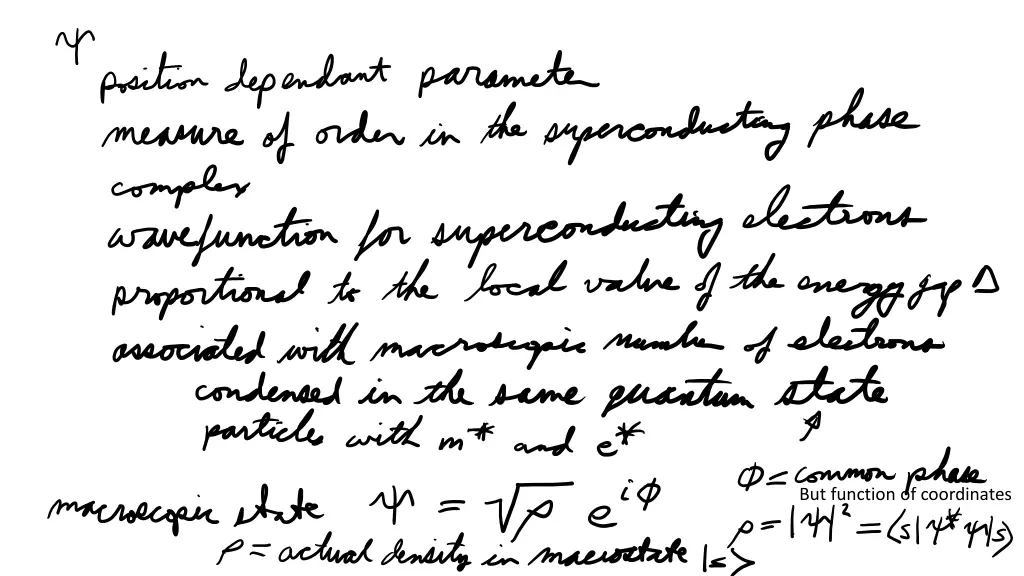 ψ
position dependant parameter
measure of order in the superconducting phase
complex
wavefunction for superconducting electrons
proportional to the local value of the energy gap Δ
associated with macroscopic number of electrons
condensed in the same quantum state
particles with m* and e*
ϕ = common phase
But function of coordinates
macroscopic state ψ = √ρ e^{iϕ}
ρ = |ψ|² = ⟨s|ψ*ψ|s⟩
ρ = actual density in macrostate |s>